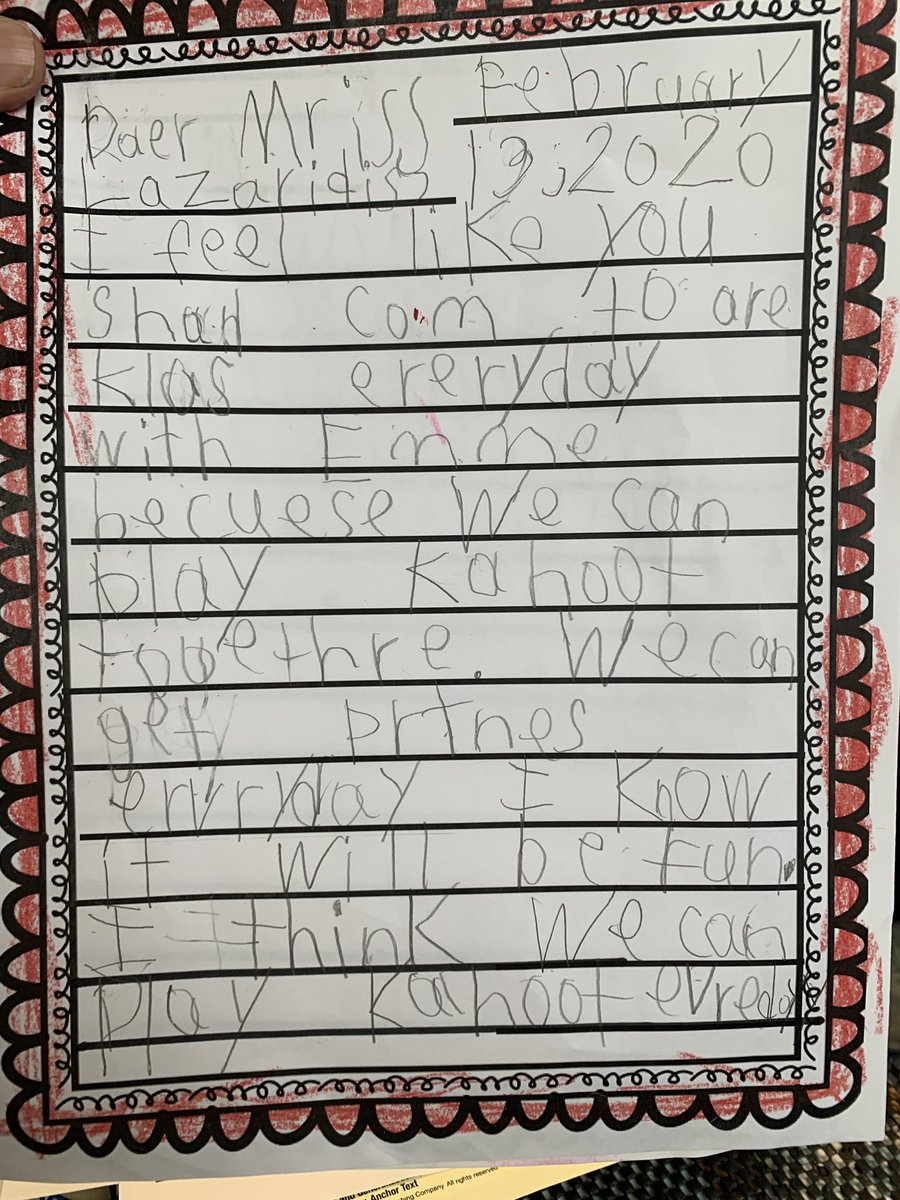 February
Daer Mr iss
13, 2020
Lazaridiss
I feel like you
Shad Com to are
klas ereryday
with Emme
becuese We can
play Kahoot
togethre. We can
get prtnes
ervryday I know
it will be fun.
I think We can
play Kahoot evreday
Anchor Text
ing Company. All rights reserved